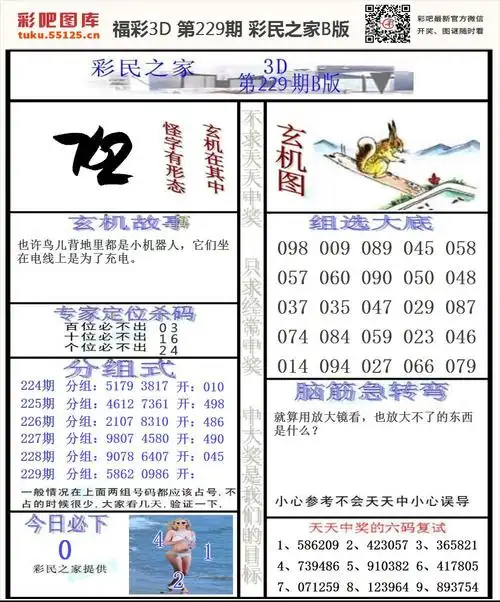 彩吧图库
tuku.55125.cn
福彩3D 第229期 彩民之家B版
彩吧最新官方微信
开奖、图谜随时看
彩民之家 3D
第229期B版
怪字有形态
玄机在其中
不求天天中奖 只求经常中奖 中大奖是我们的目标
玄机图
玄机故事
也许鸟儿背地里都是小机器人，它们坐
在电线上是为了充电。
专家定位杀码
百位必不出 03
十位必不出 16
个位必不出 24
分组式
224期 分组：5179 3817 开：010
225期 分组：4612 7361 开：498
226期 分组：2107 8310 开：486
227期 分组：9807 4580 开：490
228期 分组：9078 6407 开：045
229期 分组：5862 0986 开：
一般情况在上面两组号码都应该占号.不
占的时候很少.大家看几天.验证一下.
今日必下
0
彩民之家提供
4
1
2
组选大底
098 009 089 045 058
057 060 090 050 048
037 035 047 029 087
074 084 059 023 046
014 094 027 066 079
脑筋急转弯
就算用放大镜看，也放大不了的东西
是什么？
小心参考不会天天中小心误导
天天中奖的六码复试
1、586209 2、423057 3、365821
4、739486 5、910382 6、417805
7、071259 8、123964 9、893754